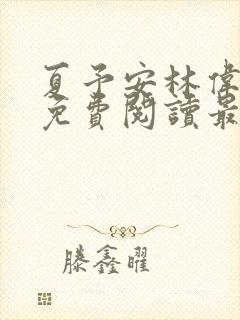 夏予安林偉
免費閱讀最
滕鑫曜